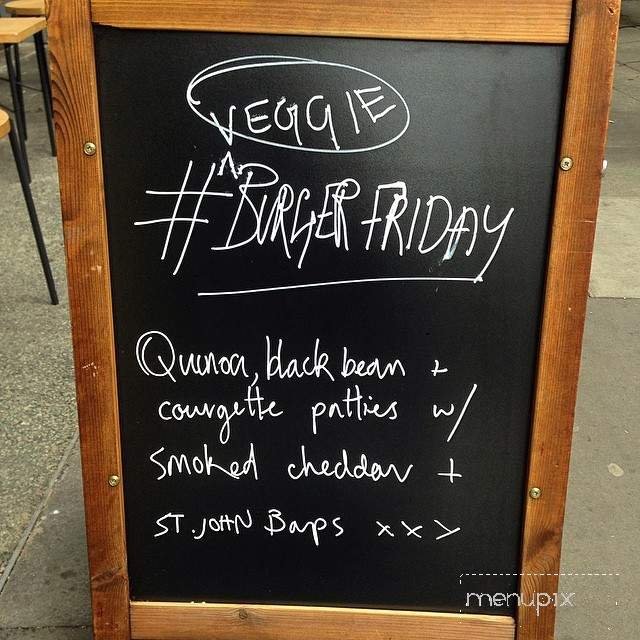 VEGGIE
#BURGER FRIDAY
Quinoa, black bean +
courgette patties w/
smoked cheddar +
ST. JOHN Baps xxx
menupix